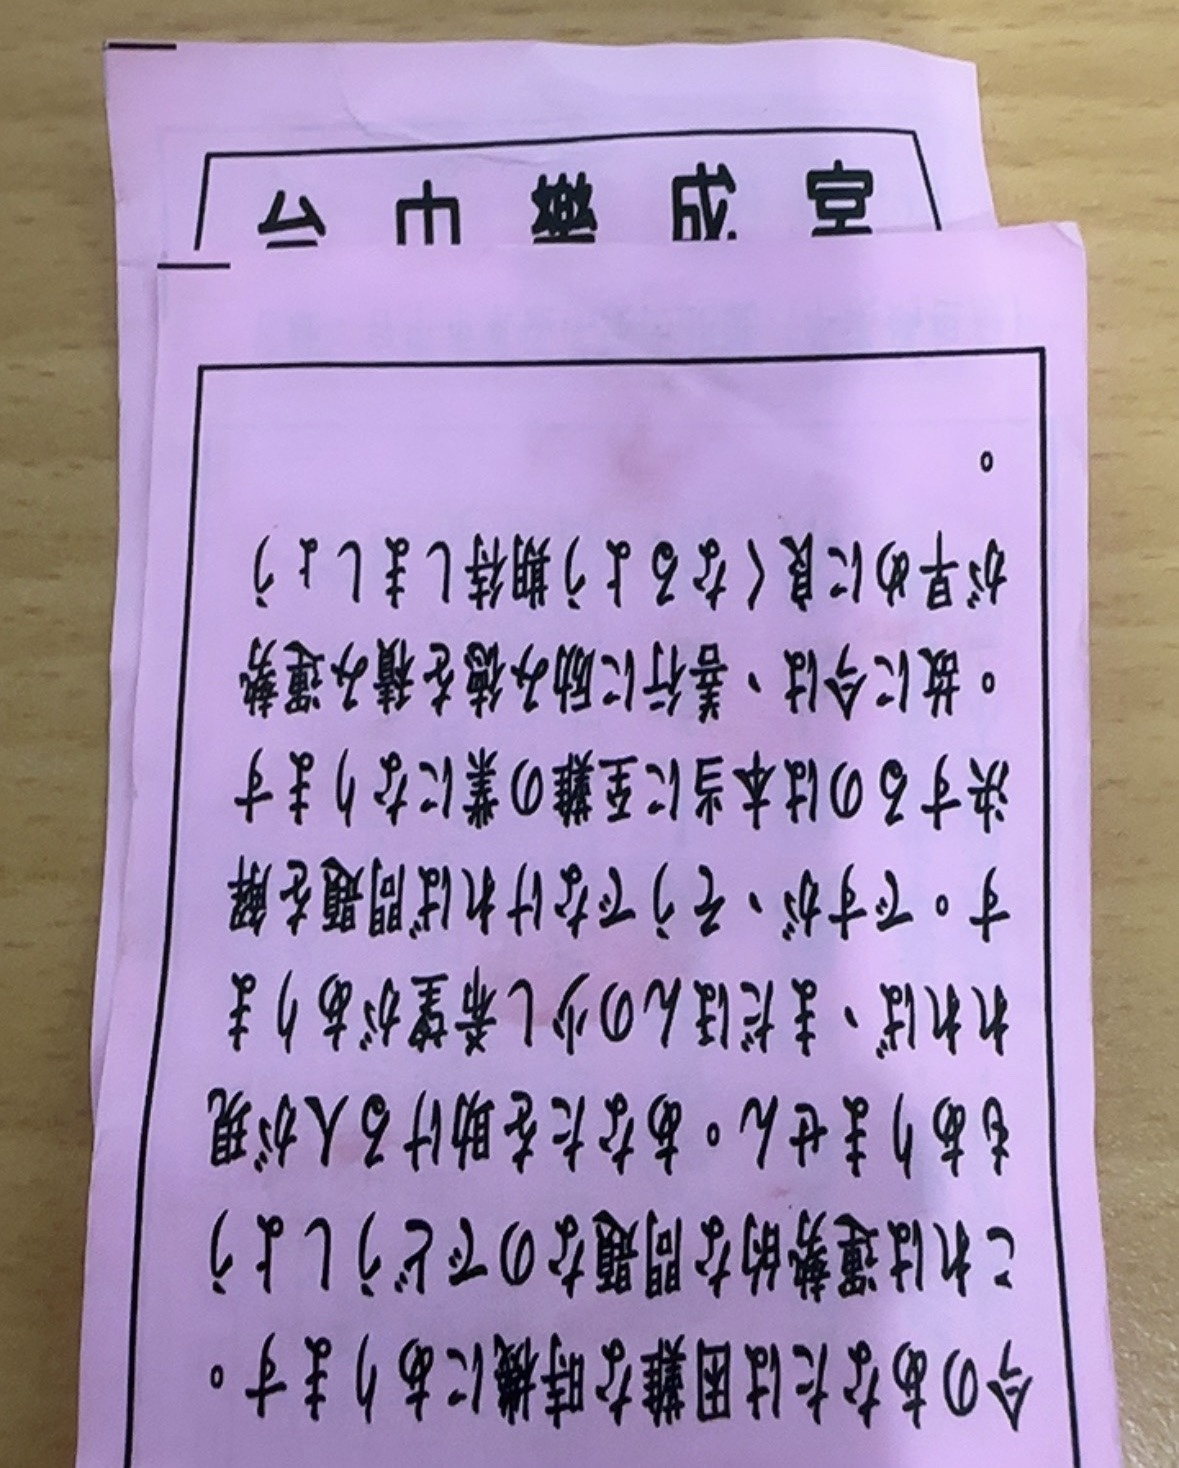 今のあなたは困難な時機にあります。
これは運勢的な問題なのでどうしよう
もありません。あなたを助ける人が現
れれば、まだほんの少し希望がありま
す。ですが、そうでなければ問題を解
決するのは本当に至難の業になります
。故に今は、善行に励み徳を積み運勢
が早めに良くなるよう期待しましょう
。
台中樂成宮